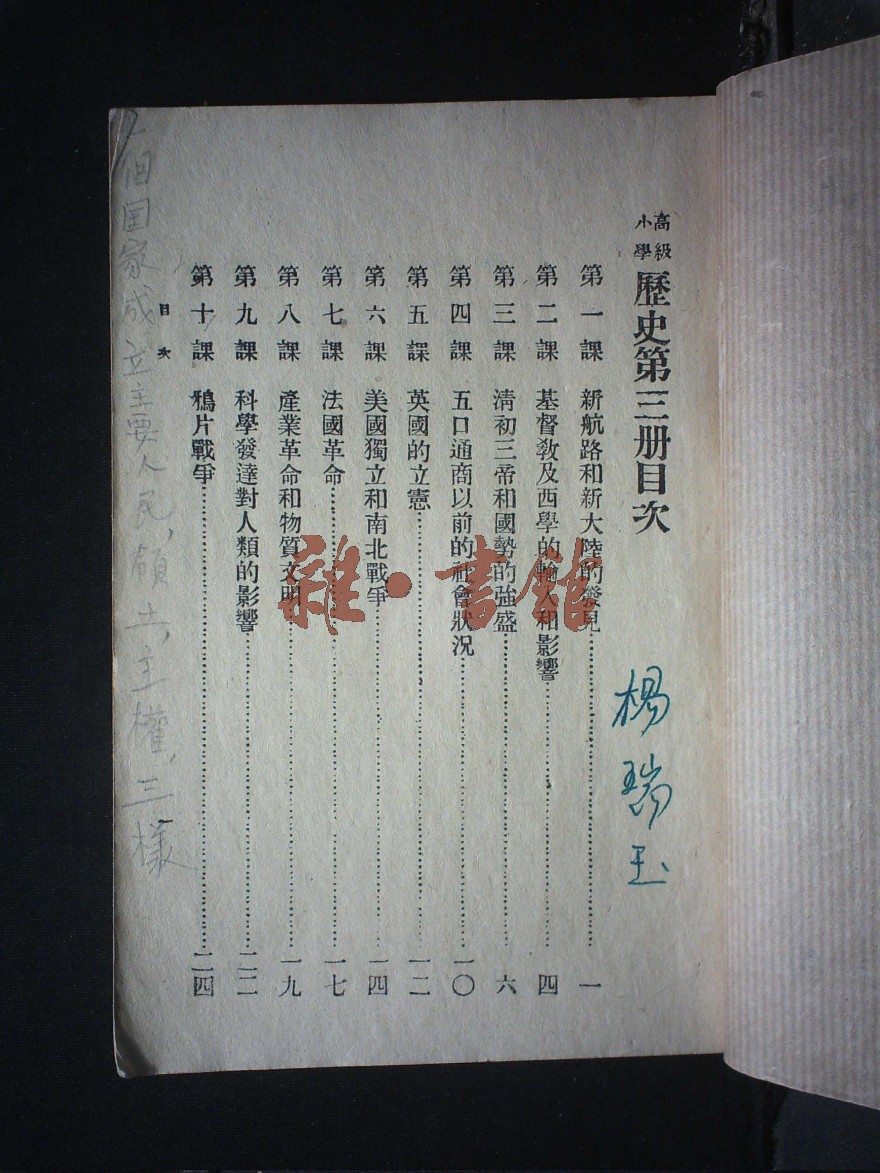 高級
小學
歷史第三册目次
楊瑞玉
第一課 新航路和新大陸的發見……一
第二課 基督敎及西學的輸入和影響……四
第三課 淸初三帝和國勢的強盛……六
第四課 五口通商以前的社會狀况……一〇
第五課 英國的立憲……一二
第六課 美國獨立和南北戰爭……一四
第七課 法國革命……一七
第八課 產業革命和物質文明……一九
第九課 科學發達對人類的影響……二二
第十課 鴉片戰爭……二四
目次
一個国家成立主要人民,領土主權,三樣
雜·書館